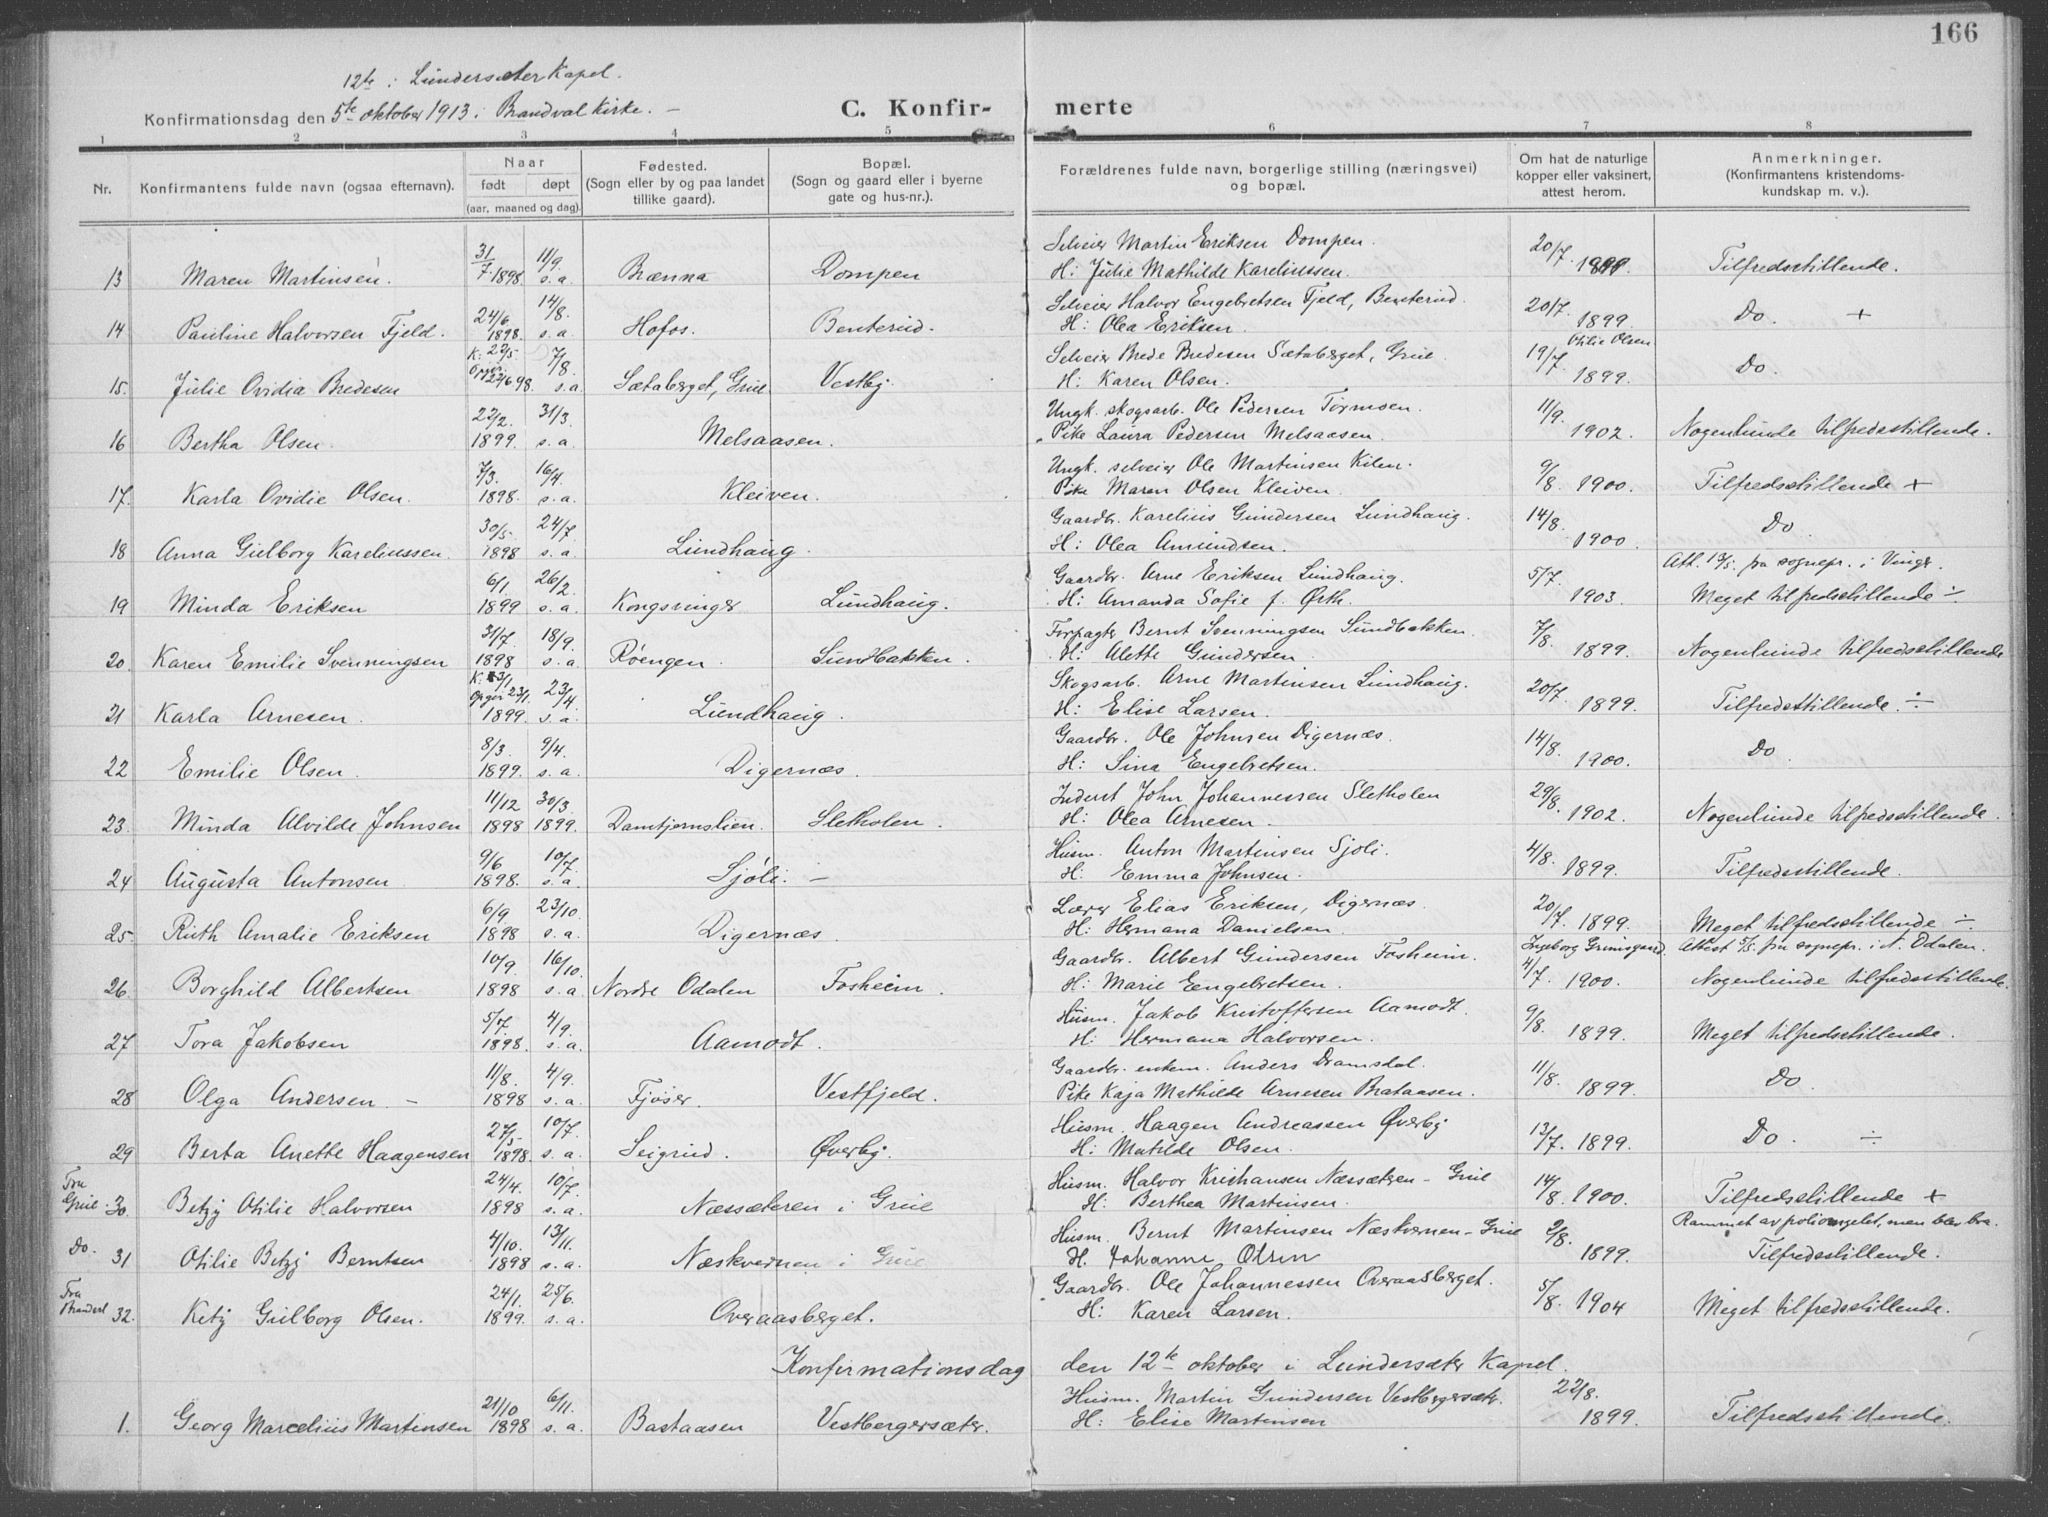 166
12te i Lundersæter Kapel.
Konfirmationsdag den 5te oktober 1913 i Brandval Kirke. –
C. Konfir- merte
1 2 3 4 5 6 7 8
Nr. Konfirmantens fulde navn (ogsaa efternavn). Naar født døpt (aar, maaned og dag). Fødested. (Sogn eller by og paa landet tillike gaard). Bopæl. (Sogn og gaard eller i byerne gate og hus-nr.). Forældrenes fulde navn, borgerlige stilling (næringsvei) og bopæl. Om hat de naturlige kopper eller vaksinert, attest herom. Anmerkninger. (Konfirmantens kristendomskundskap m. v.).
13 Maren Martinsen. 31/7 1898. 11/9 s. a. Brænna Dompen Selveier Martin Eriksen Dompen.
H: Julie Mathilde Kareliussen. 20/7. Tilfredsstillende.
14 Pauline Halvorsen Fjeld. 24/6 1898. 14/8. s. a. Hofos. Benterud. Selveier Halvor Engebretsen Fjeld, Benterud.
H: Olea Eriksen. 20/7. 1899. Do. +
15. Julie Ovidia Bredesen K: 22/5 98. 7/8. s. a. Sætaberget, Grue Vestby. Selveier Brede Bredesen Sætaberget, Grue.
H: Karen Olsen. Otilie Olsen 19/7. 1899. Do.
16 Bertha Olsen. 22/2. 1899. 31/3. s. a. Melsaasen. Ungk. skogsarb. Ole Pedersen Tormoen.
Pike Laura Pedersen Melsaasen. 11/9. 1902. Nogenlunde tilfredsstillende.
17. Karla Ovidie Olsen. 7/3. 1898. 16/4. s. a. Kleiven. Ungk. selveier Ole Martinsen Kilen.
Pike Maren Olsen Kleiven. 9/8. 1900. Tilfredsstillende +
18 Anna Gulborg Kareliussen. 30/5. 1898 24/7. s. a. Lundhaug. Gaardbr. Karelius Gundersen Lundhaug.
H: Olea Amundsen. 14/8. 1900. Do.
19 Minda Eriksen 6/1. 1899 26/2. s. a. Kongsvinger Lundhaug. Gaardbr. Arne Eriksen Lundhaug.
H: Amanda Sofie f. Ørth. 5/7. 1903. fra sognepr. i Vinger.
Meget tilfredsstillende ÷
20. Karen Emilie Svenningsen 31/7. 1898 18/9. s. a. Røengen. Sundbakken. Forpagter Bernt Svenningsen Sundbakken.
H: Alette Gundersen. 7/8. 1899. Nogenlunde tilfredsstillende
21 Karla Arnesen. 23/1. 1899. 23/4. s. a. Lundhaug. Skogsarb. Arne Martinsen Lundhaug.
H: Elise Larsen. 20/7. 1899. Tilfredsstillende. ÷
22 Emilie Olsen. 8/3. 1899. 9/4. s. a. Digernæs. Gaardbr. Ole Johnsen Digernæs.
H: Sina Engebretsen. 14/8. 1900. Do.
23. Minda Alvilde Johnsen 11/12 1898 30/3. 1899. Damtjernslien. Sletholen. Inderst John Johannessen Sletholen
H: Olea Arnesen. 29/8. 1902. Nogenlunde tilfredsstillende.
24 Augusta Antonsen. 9/6 1898. 10/7. s. a. Sjøli. – Husm. Anton Martinsen Sjøli.
H: Emma Johnsen. 4/8. 1899. Tilfredsstillende.
25. Ruth Amalie Eriksen 6/9. 1898 23/10. s. a. Digernæs. Lærer Elias Eriksen, Digernæs.
H: Hermana Danielsen. 20/7. 1899. Meget tilfredsstillende ÷
26. Borghild Albertsen 10/9. 1898 16/10. s. a. Nordre Odalen Fosheim. Gaardbr. Albert Gundersen Fosheim.
H: Marie Engebretsen. Ingeborg Grimsgaard. 4/7. 1900. Attest fra sognepr. i N. Odalen.
Nogenlunde tilfredsstillende.
27 Tora Jakobsen 5/7. 1898. 4/9. s. a. Aamodt. Husm. Jakob Kristoffersen Aamodt.
H: Hermana Halvorsen. 9/8. 1899. Meget tilfredsstillende.
28 Olga Andersen. – 11/8. 1898 4/9. s. a. Fjøser. Vestfjeld. Gaardbr. enkem. Anders Dramsdal.
Pike Kaja Mathilde Arnesen Brataasen. 11/8. 1899. Do
29 Berta Anette Haagensen 27/5 1898. 10/7. s. a. Seigrud. Øverby. Husm. Haagen Andreassen Øverby
H: Matilde Olsen. 13/7. 1899. Do. ÷
Fra Grue. 30. Betzy Otilie Halvorsen 24/4. 1898 10/7. s. a. Næssæteren i Grue Husm. Halvor Kristiansen Næssæteren – Grue
H: Berthea Martinsen. 14/8. 1900. Tilfredsstillende +
Do. 31 Otilie Betzy Berntsen 4/10. 1898 13/11. s. a. Næskvernen i Grue Husm. Bernt Martinsen Næskvernen – Grue
H. Johanne Olsen 2/8. 1899. Rammet av men blev bra.
Tilfredsstillende.
Fra 32. Kitzy Gulborg Olsen. 24/1. 1899. 25/6. s. a. Overaasberget. Gaardbr. Ole Johannessen Overaasberget.
H: Karen Larsen. 5/8. 1904 Meget tilfredsstillende.
Konfirmationsdag den 12te oktober i Lundersæter Kapel.
1. Georg Marcelius Martinsen 21/10 1898 6/11. s. a. Bastaasen Vestbergersæter. Husm. Martin Gundersen Vestbergersæter.
H: Elise Martinsen 22/8. 1899. Tilfredsstillende.